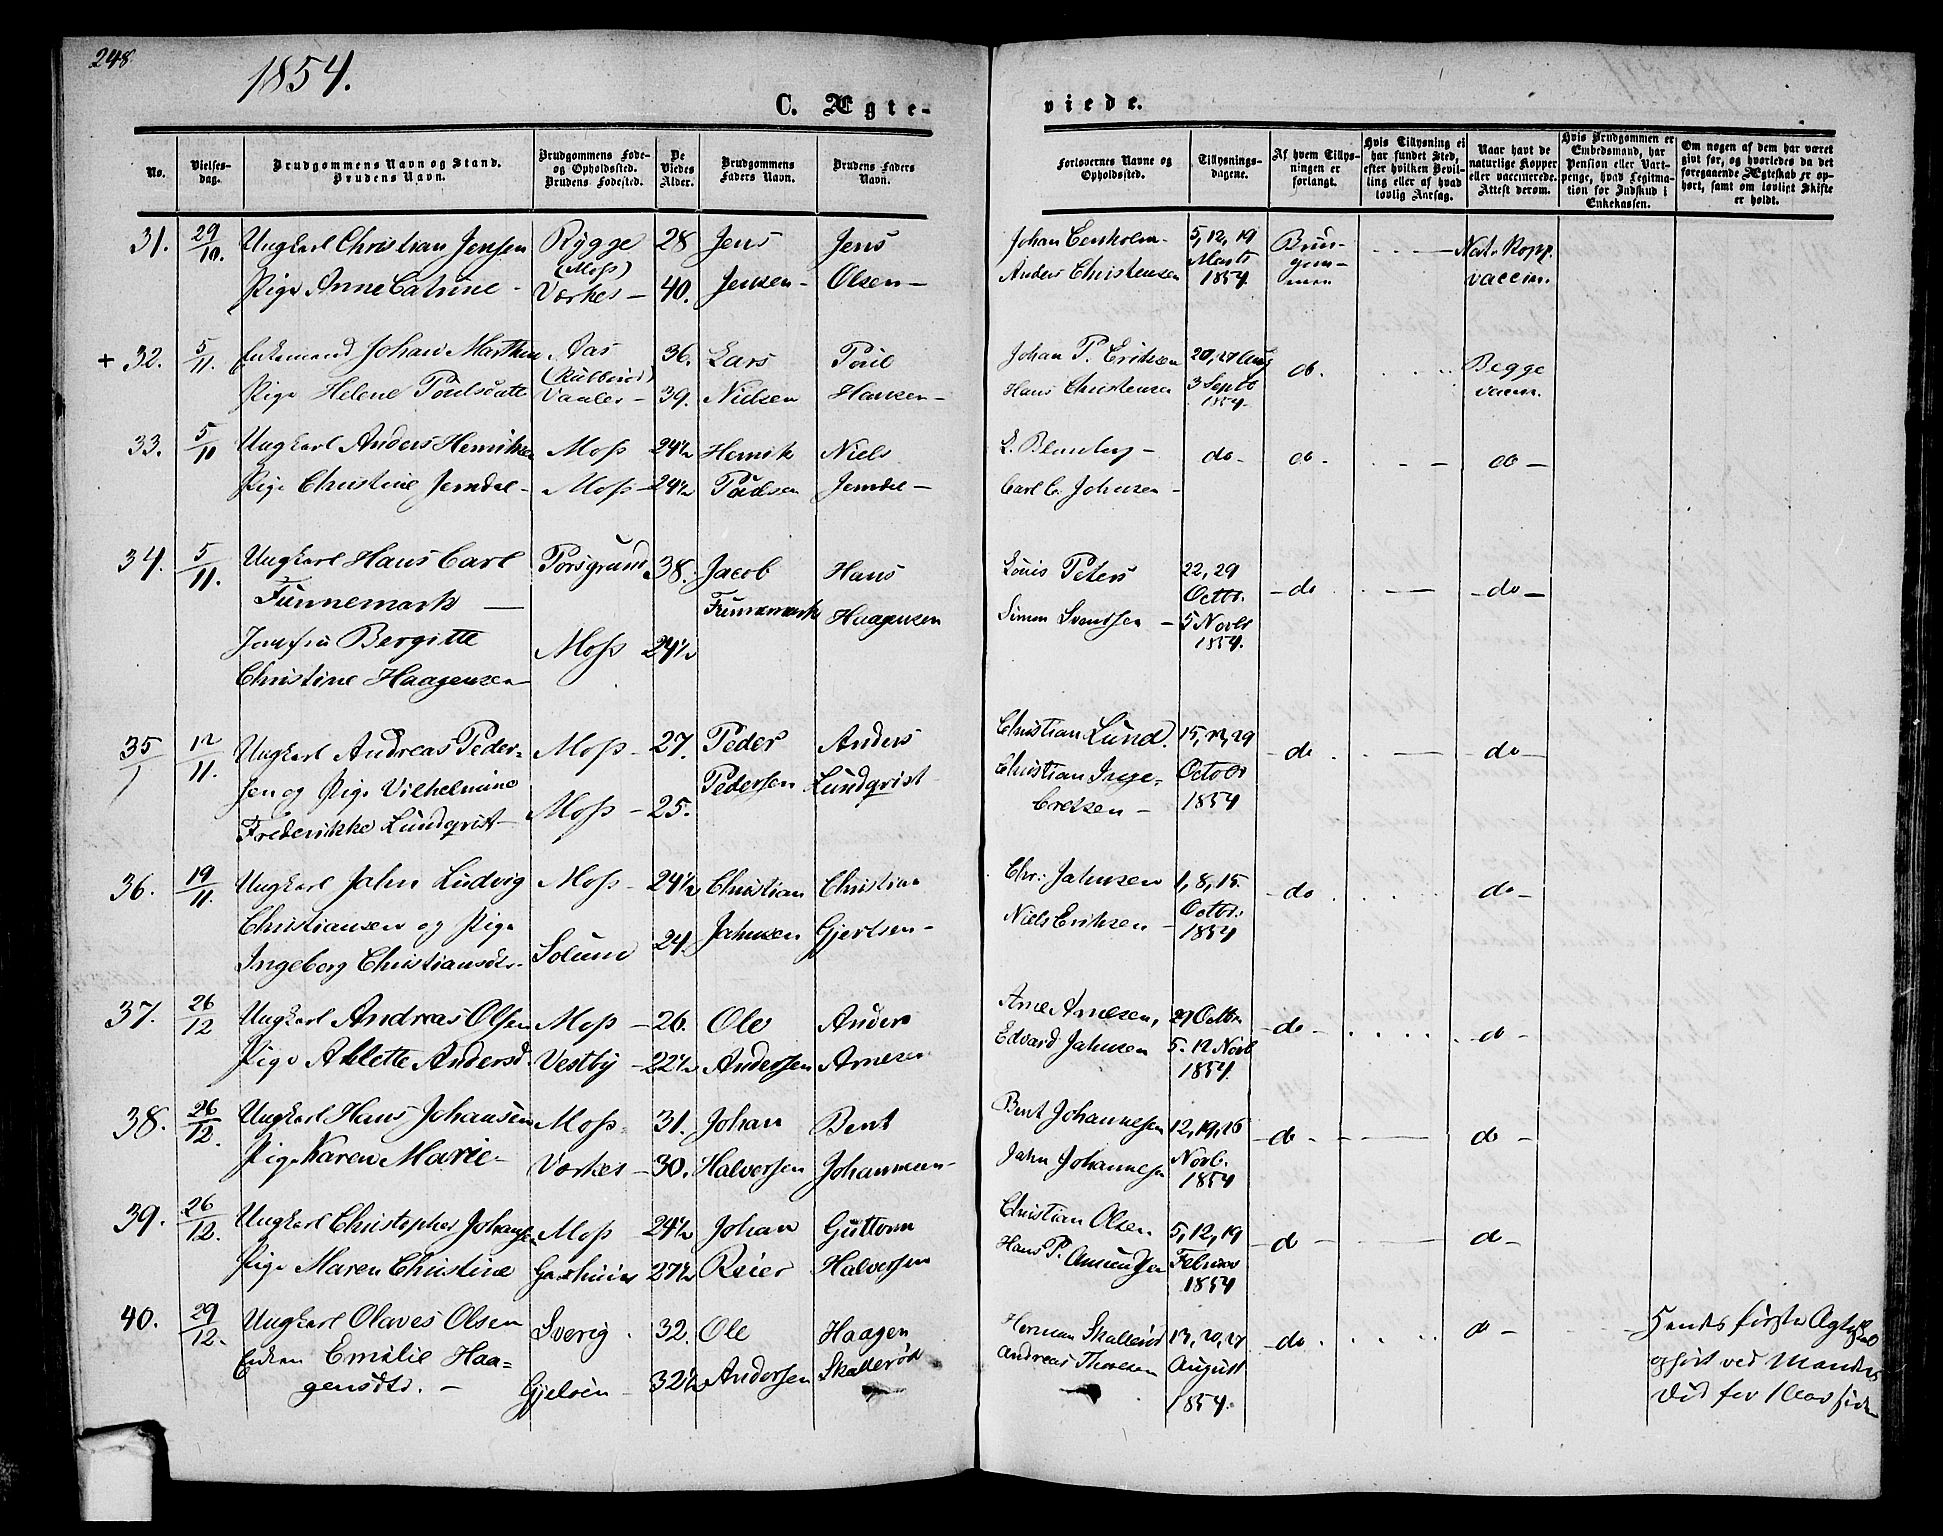 248
1854.
C. Ægte-
viede.
No.
Vielses-
dag.
Brudgommens Navn og Stand.
Brudens Navn.
Brudgommens Føde-
og Opholdssted.
Brudens Fødested.
De
Viedes
Alder.
Brudgommens
Faders Navn.
Brudens Faders
Navn.
Forlovernes Navne og
Opholdssted.
Tillysnings-
dagene.
Af hvem Tillys-
ningen er
forlangt.
Hvis Tillysning ei
har fundet Sted,
efter hvilken Bevil-
ling eller af hvad
lovlig Aarsag.
Naar havt de
naturlige Kopper
eller vaccinerede.
Attest derom.
Hvis Brudgommen er
Embedsmand, har
Pension eller Vart-
penge, hvad Legitima-
tion for Indskud i
Enkekassen.
Om nogen af dem har været
givt før, og hvorledes da det
foregaaende Ægteskab er op-
hørt, samt om lovligt Skifte
er holdt.
31. 29/10. Ungkarl Christian Jensen Rygge 28 Jens Jens 5, 12, 19 Nat. Kopp.
(Moss) Marts
Pige Anne Catrine - Værket - 40. Jensen - Olsen - Anders Christensen 1854. vaccin.
+ 32. 5/11. Enkemand Johan Marthin Aas 36. Lars Poul Johan P. Eriksen 20, 27 Aug do. Begge
Pige Helene Poulsdatt Vaaler - 39. Nielsen Hansen - Hans Christensen 3 Septb vaccin.
1854.
33. 5/11 Ungkarl Anders Henriksen Moss 24½ Henrik Niels do - do - do -
Pige Christine Jerndal - Moss - 24½ Poulsen Jerndal - Carl C. Johnsen -
34. 5/11. Ungkarl Hans Carl Porsgrund 38. Jacob Hans Louis Peters 22, 29
Funnemark - Funnemark Haagensen Octbr. - do - do -
Jomfru Bergitte Moss 24½ Simen Svendsen - 5 Novb
Christine Haagensen 1854.
35 12/11. Ungkarl Andreas Peder- Moss - 27. Peder Anders Christian Lund. 15, 22, 29 - do - do -
sen og Pige Vilhelmine Pedersen Lundqvist Christian Inge- Octobr
Frederikke Lundqvist - Moss - 25. bretsen - 1854
36. 19/11. Ungkarl Jahn Ludvig Moss - 24½ Christian Christian Chr: Jahnsen 1, 8, 15. - do do -
Christiansen og Pige Octbr.
Ingeborg Christiansdtr. 24. Jahnsen Gjertsen - Niels Eriksen - 1854
37. 26/12 Ungkarl Andreas Olsen Moss - 26. Ole Anders Arne Arnesen, 29 Octbr - do - do -
Pige Ablette Andersd. Vestby - 22½ Andersen Arnesen Edvard Jahnsen 5. 12 Novb
1854.
38. 26/12. Ungkarl Hans Johansen Moss - 31. Johan Bent Bent Johannesen 12, 19, 26 - do - do -
Pige Karen Marie - Værket - 30. Halversen Johannesen - Jahn Johannesen Novb.
1854
39. 26/12. Ungkarl Christopher Johansen Moss - 24½ Johan Guttorm Christian Olsen 5, 12, 19 - do - do -
Pige Maren Christine 27½ Reier Halversen Hans P. Amundsen Februar
1854
40. 29/12. Ungkarl Olaves Olsen Sverig. 32. Ole Haagen Herman Skallerød 13, 20, 27 - do do - Hendes første Ægtesk
Enken Emilie Haa- Andersen Skallerød Andreas Thoresen August ophørt ved Mandens
gensdtr. - 32½ 1854. Død for 1 Aar siden